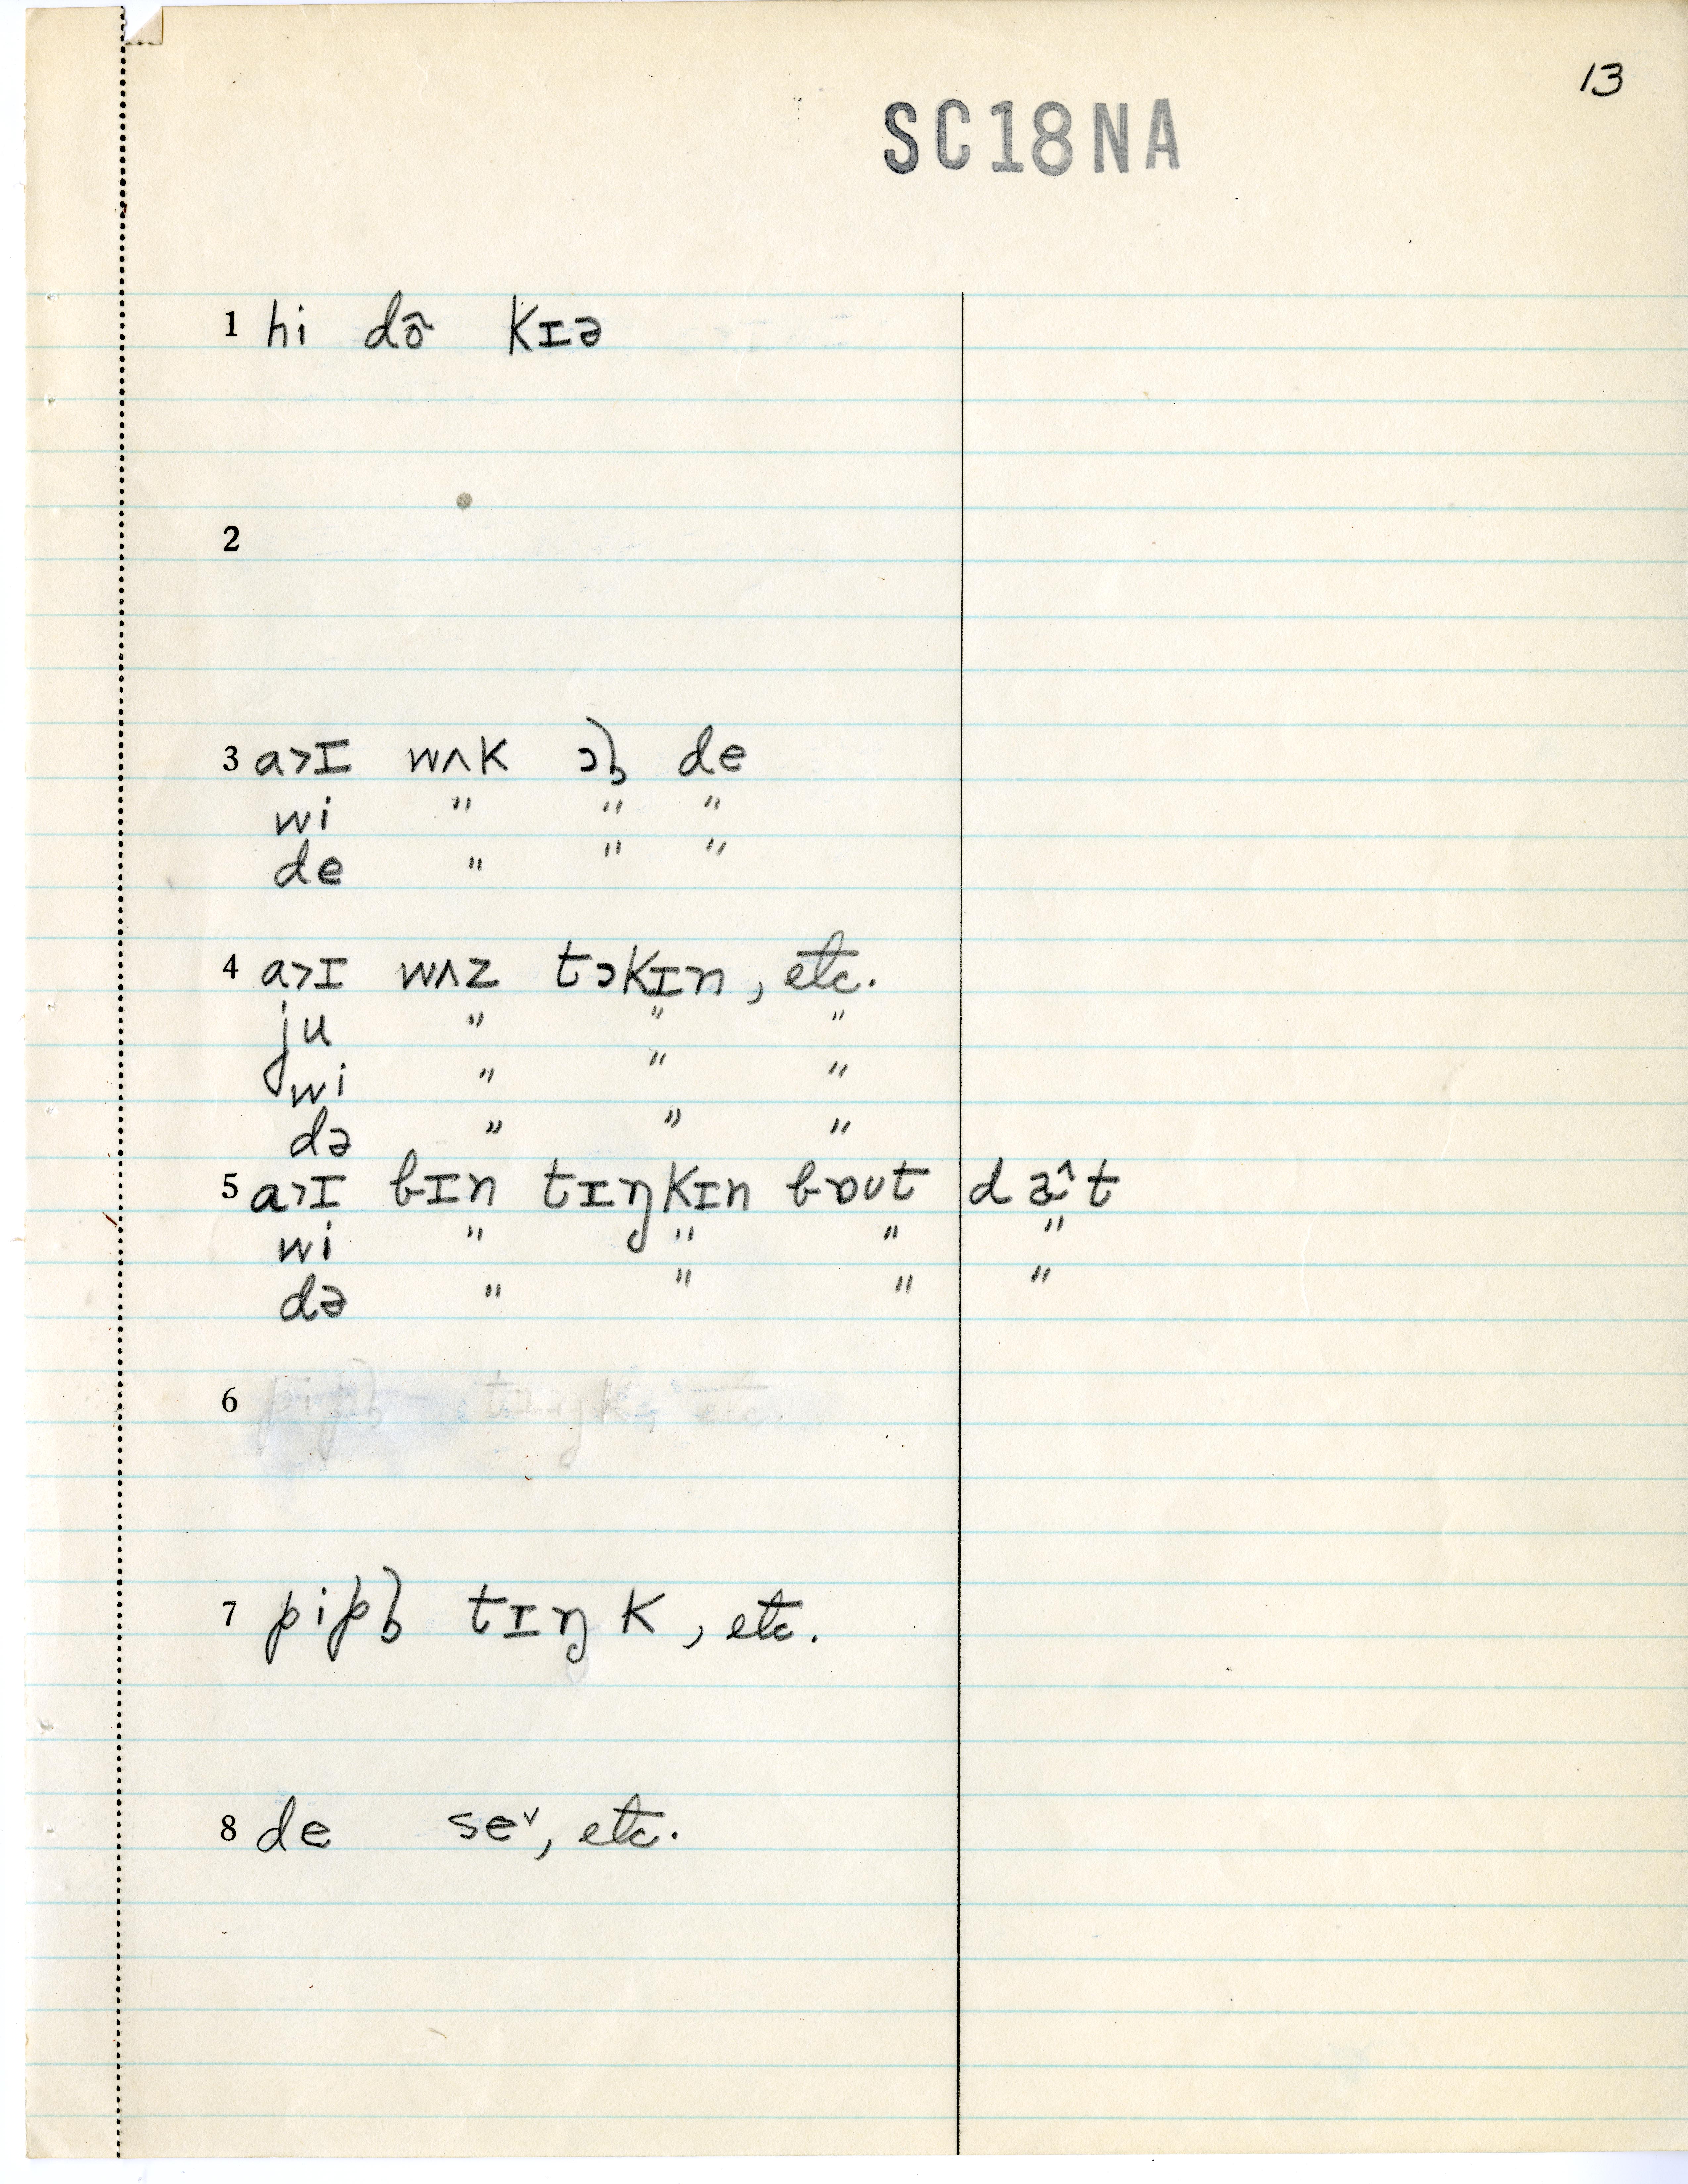 13
SC18NA
1 hi dõ kɪə
2
3 a>ɪ wʌk ɔɫ de
wi " " "
de " " "
4 a>ɪ wʌz tɔkɪn, etc.
ju " " "
wi " " "
də " " "
5 a>ɪ bɪn tɪŋkɪn bɒʊt dæ^t
wi " " " "
də " " " "
6 pipɫ tɪŋk, etc.
7 pipɫ tɪŋk, etc.
8 de se˅, etc.